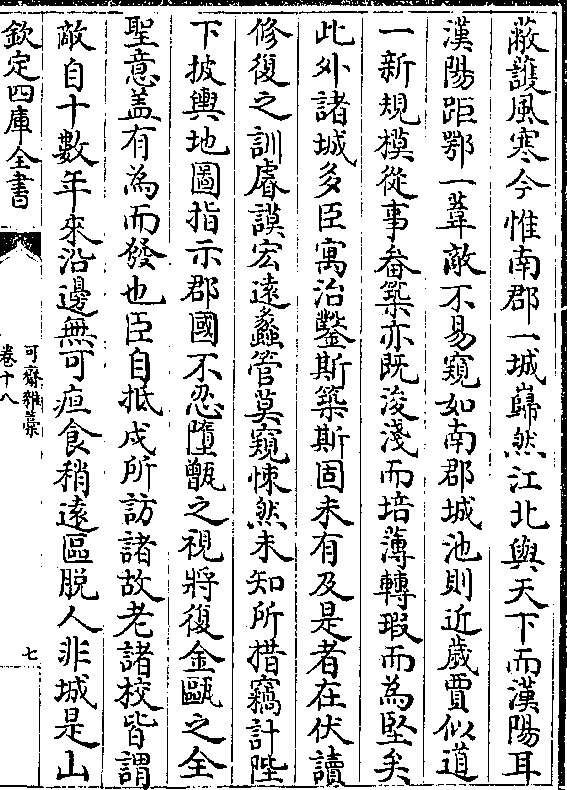 蔽護風寒今惟南郡一城巋然江北與天下而漢陽耳
漢陽距鄂一葦敵不易窺如南郡城池則近歲賈似道
一新規模從事畚築亦既浚淺而培薄轉瑕而為堅矣
此外諸城多臣寓治鑿斯築斯固未有及是者在伏讀
修復之訓睿謨宏遠蠡管莫窺悚然未知所措竊計陛
下披輿地圖指示郡國不忍墮甑之視將復金甌之全
聖意盖有為而發也臣自抵戍所訪諸故老諸校皆謂
敵自十數年來沿邊無可疸食稍遠區脱人非城是山
欽定四庫全書
可齋雜藁
卷十八
七